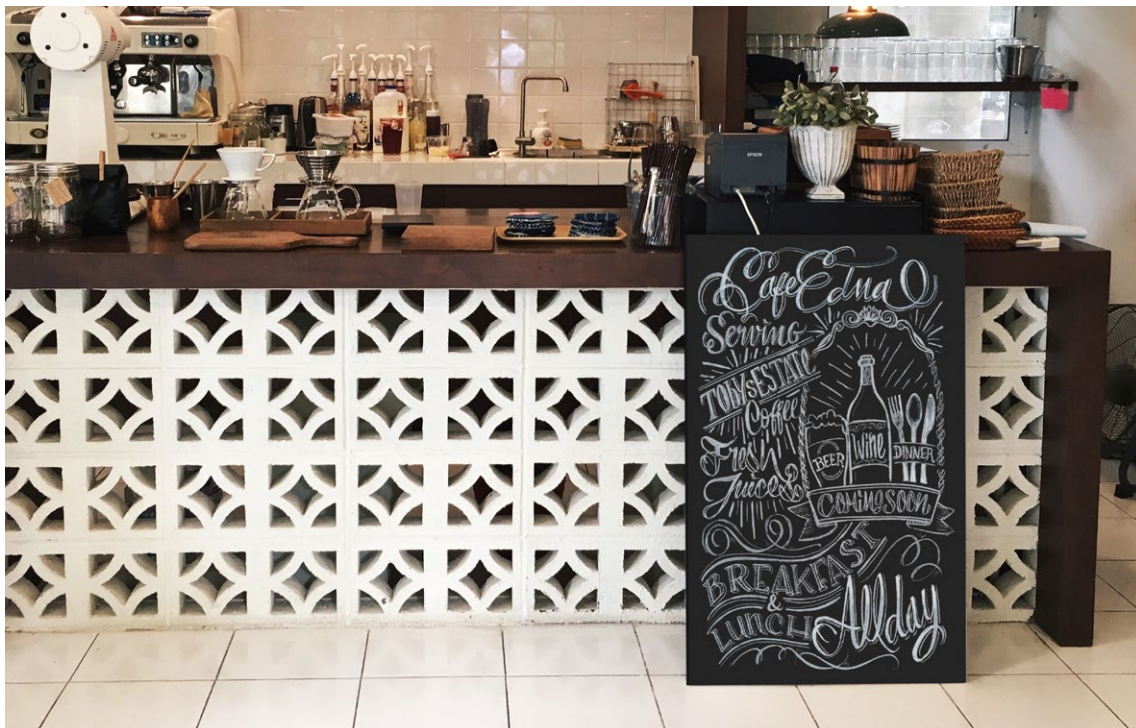 EPSON
Cafe Edna
Serving
TOBY'S ESTATE
Coffee
Fresh
Juices
BEER
Wine
DINNER
COMING SOON
BREAKFAST
&
LUNCH
All day